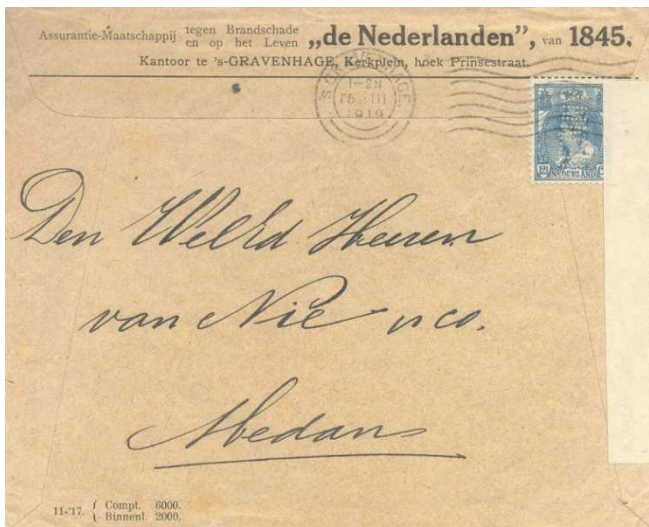 Assurantie-Maatschappij tegen Brandschade en op het Leven „de Nederlanden”, van 1845.
Kantoor te 's-GRAVENHAGE, Kerkplein, hoek Prinsestraat.
'S GRAVENHAGE
1-2N
III
1919
NEDERLAND
Den Wel Ed Heeren
van Nie & Co.
Medan
11-'17. { Compt. 6000.
Binnenl. 2000.